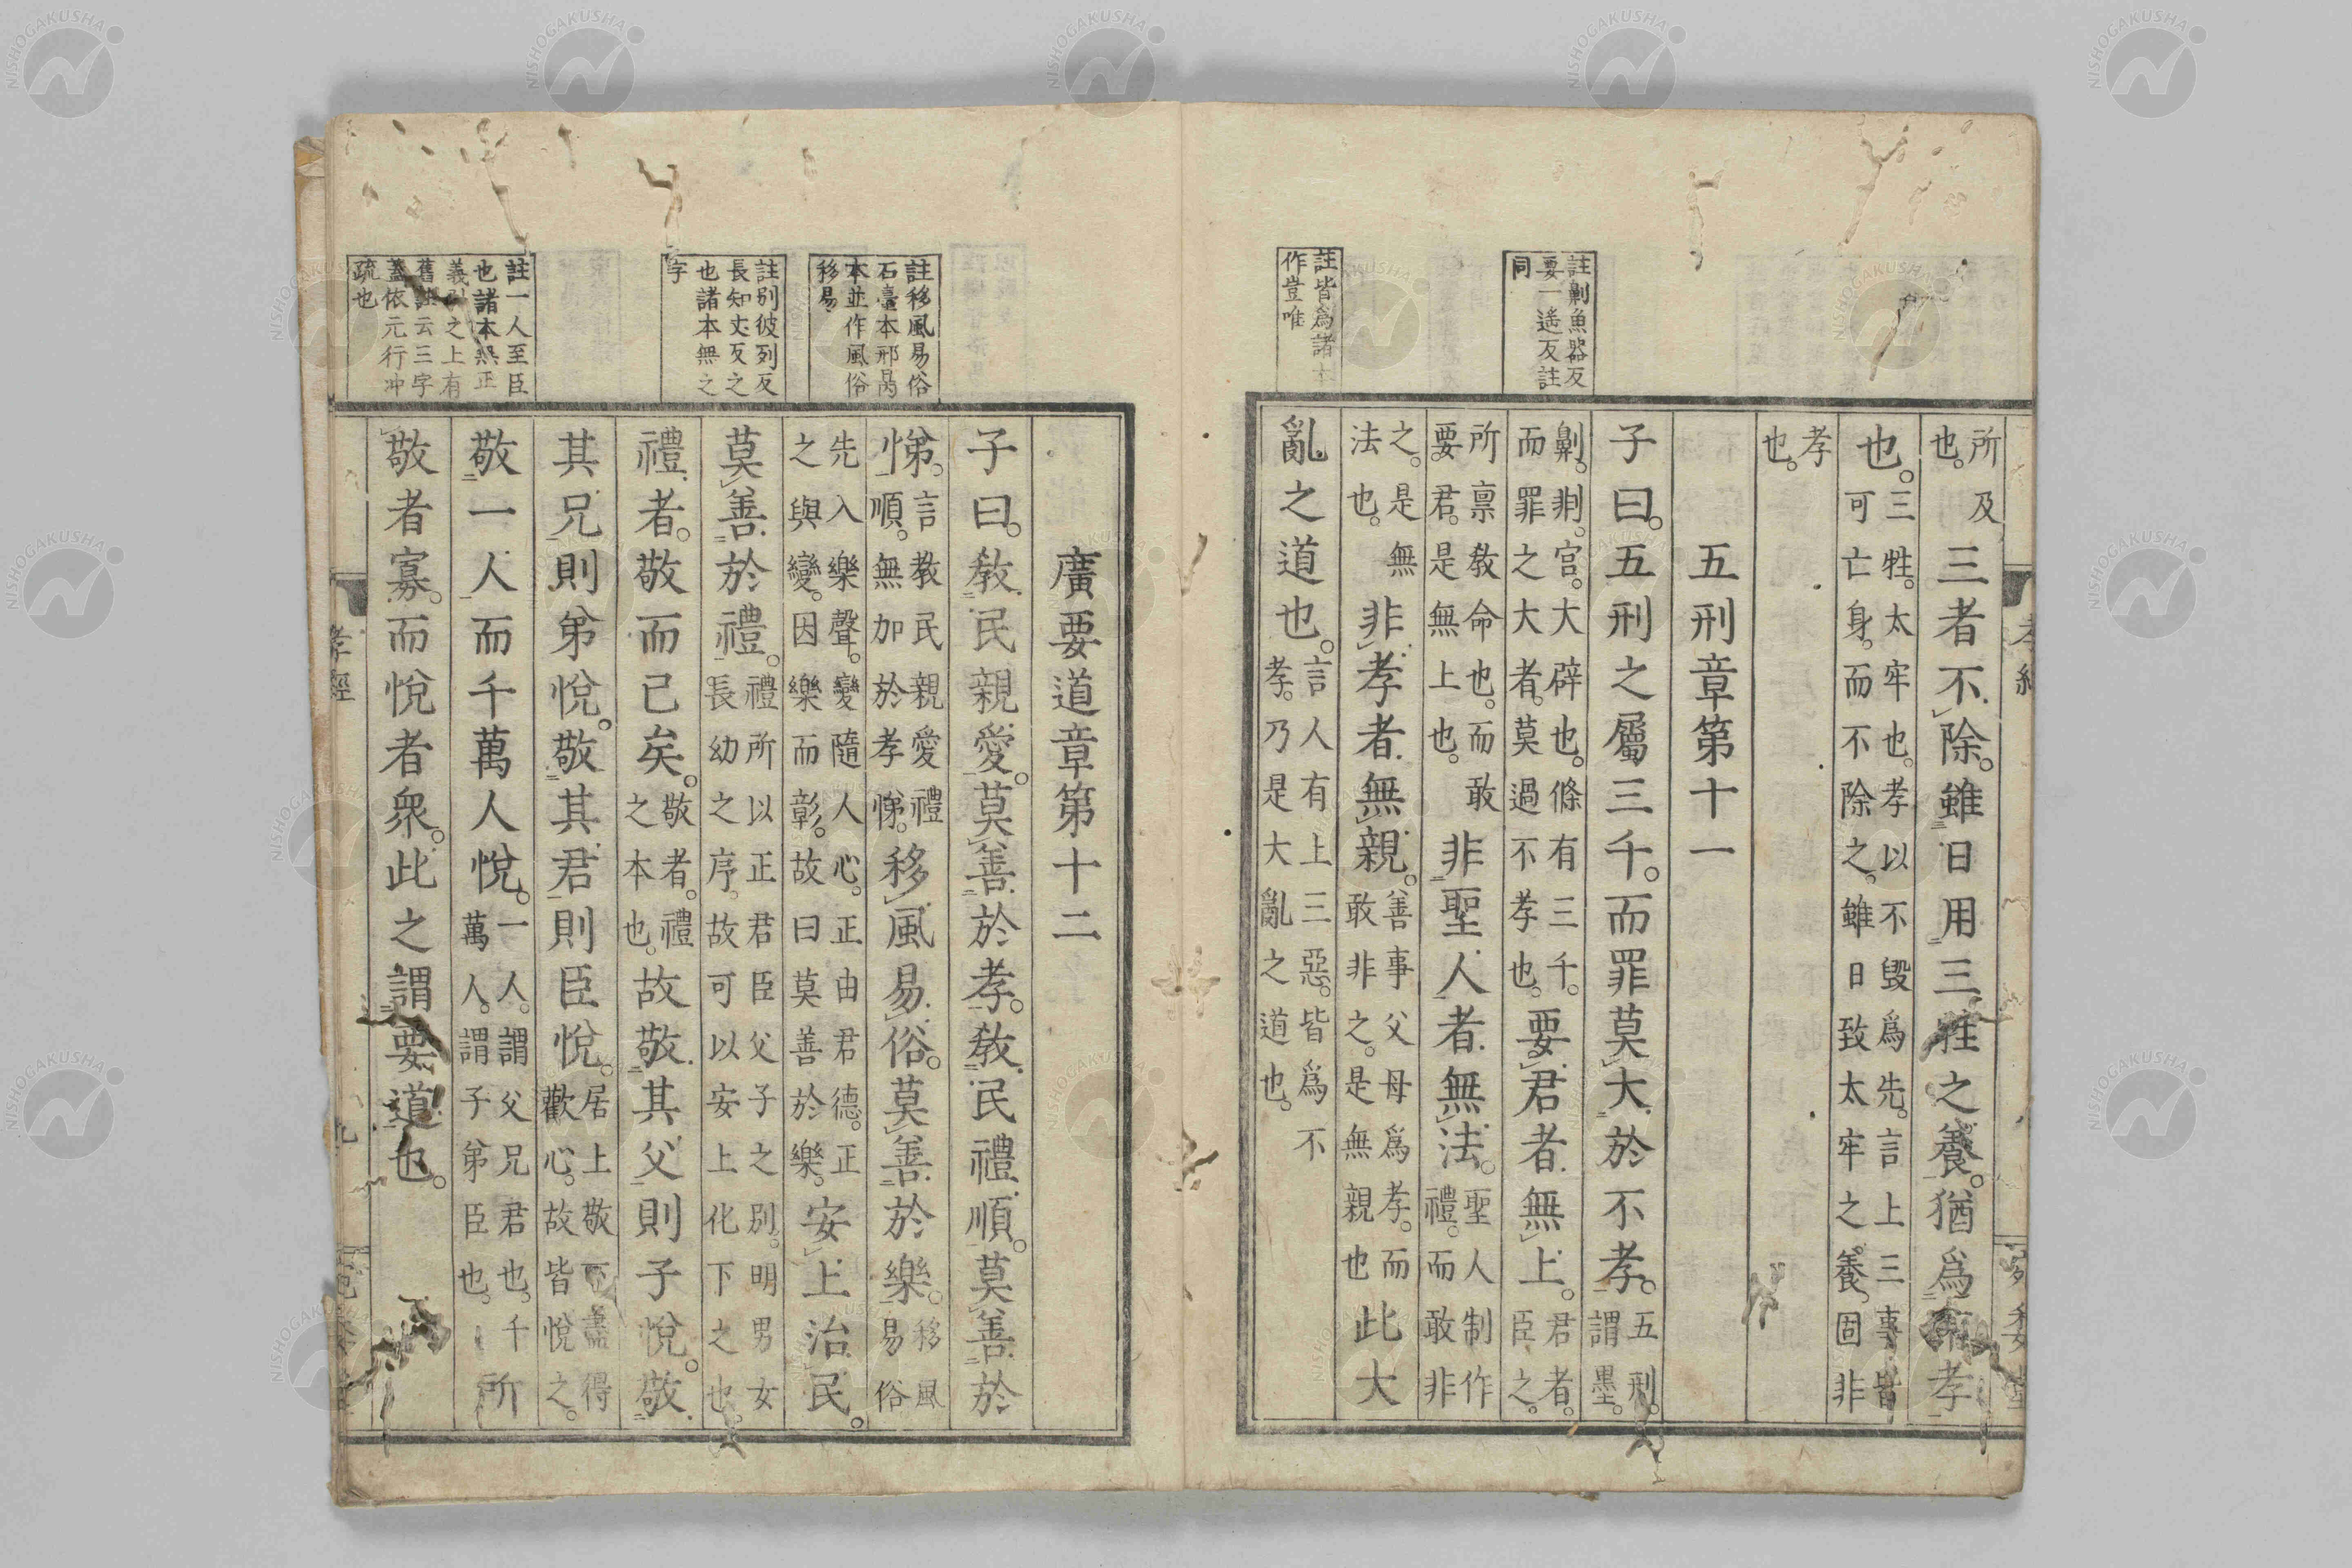 所及也。三者不除。雖日用三牲之養。猶爲不孝
也。三牲。太牢也。孝以不毀爲先。言上三事皆可亡身。而不除之。雖日致太牢之養。固非
孝也。
五刑章第十一
註劓魚器反
要一遙反註
同
子曰。五刑之屬三千。而罪莫大於不孝。五刑。謂墨。
劓。剕。宮。大辟也。條有三千。而罪之大者。莫過不孝也。要君者無上。君者。臣之。
所禀敎命也。而敢要君。是無上也。非聖人者無法。聖人制作禮。而敢非
之。是無法也。非孝者無親。善事父母爲孝。而敢非之。是無親也此大
註皆爲諸本
作豈唯
亂之道也。言人有上三惡。皆爲不孝。乃是大亂之道也。
廣要道章第十二
子曰。敎民親愛。莫善於孝。敎民禮順。莫善於
註移風易俗
石臺本邢昺
本並作風俗
移易
悌。言敎民親愛禮順。無加於孝悌。移風易俗。莫善於樂。移風易俗
先入樂聲。變隨人心。正由君德。正之與變。因樂而彰。故曰莫善於樂。安上治民。
註別彼列反
長知丈反之
也諸本無之
字
莫善於禮。禮所以正君臣父子之別。明男女長幼之序。故可以安上化下之也。
禮者。敬而已矣。敬者。禮之本也。故敬其父則子悅。敬
其兄則弟悅。敬其君則臣悅。居上敬下盡得歡心。故皆悅之。
註一人至臣
也諸本無正
義引之上有
舊註云三字
蓋依元行冲
疏也
敬一人而千萬人悅。一人。謂父兄君也。千萬人。謂子弟臣也。所
敬者寡。而悅者衆。此之謂要道也。
孝經
九